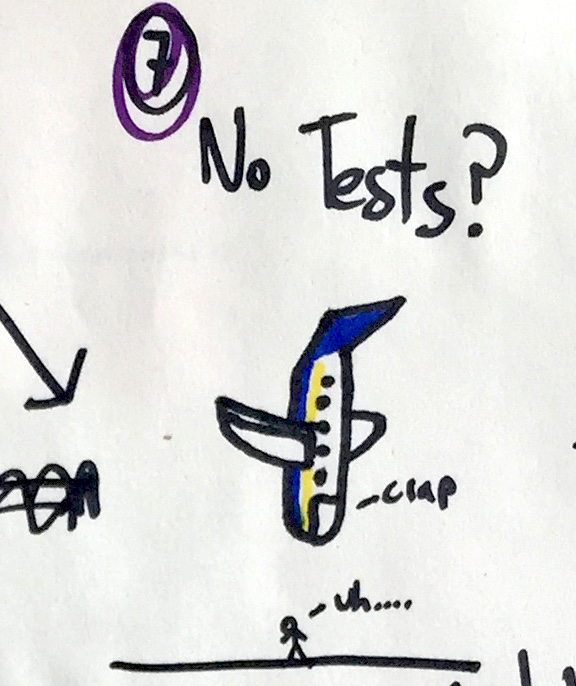 7
No Tests?
-crap
-uh....